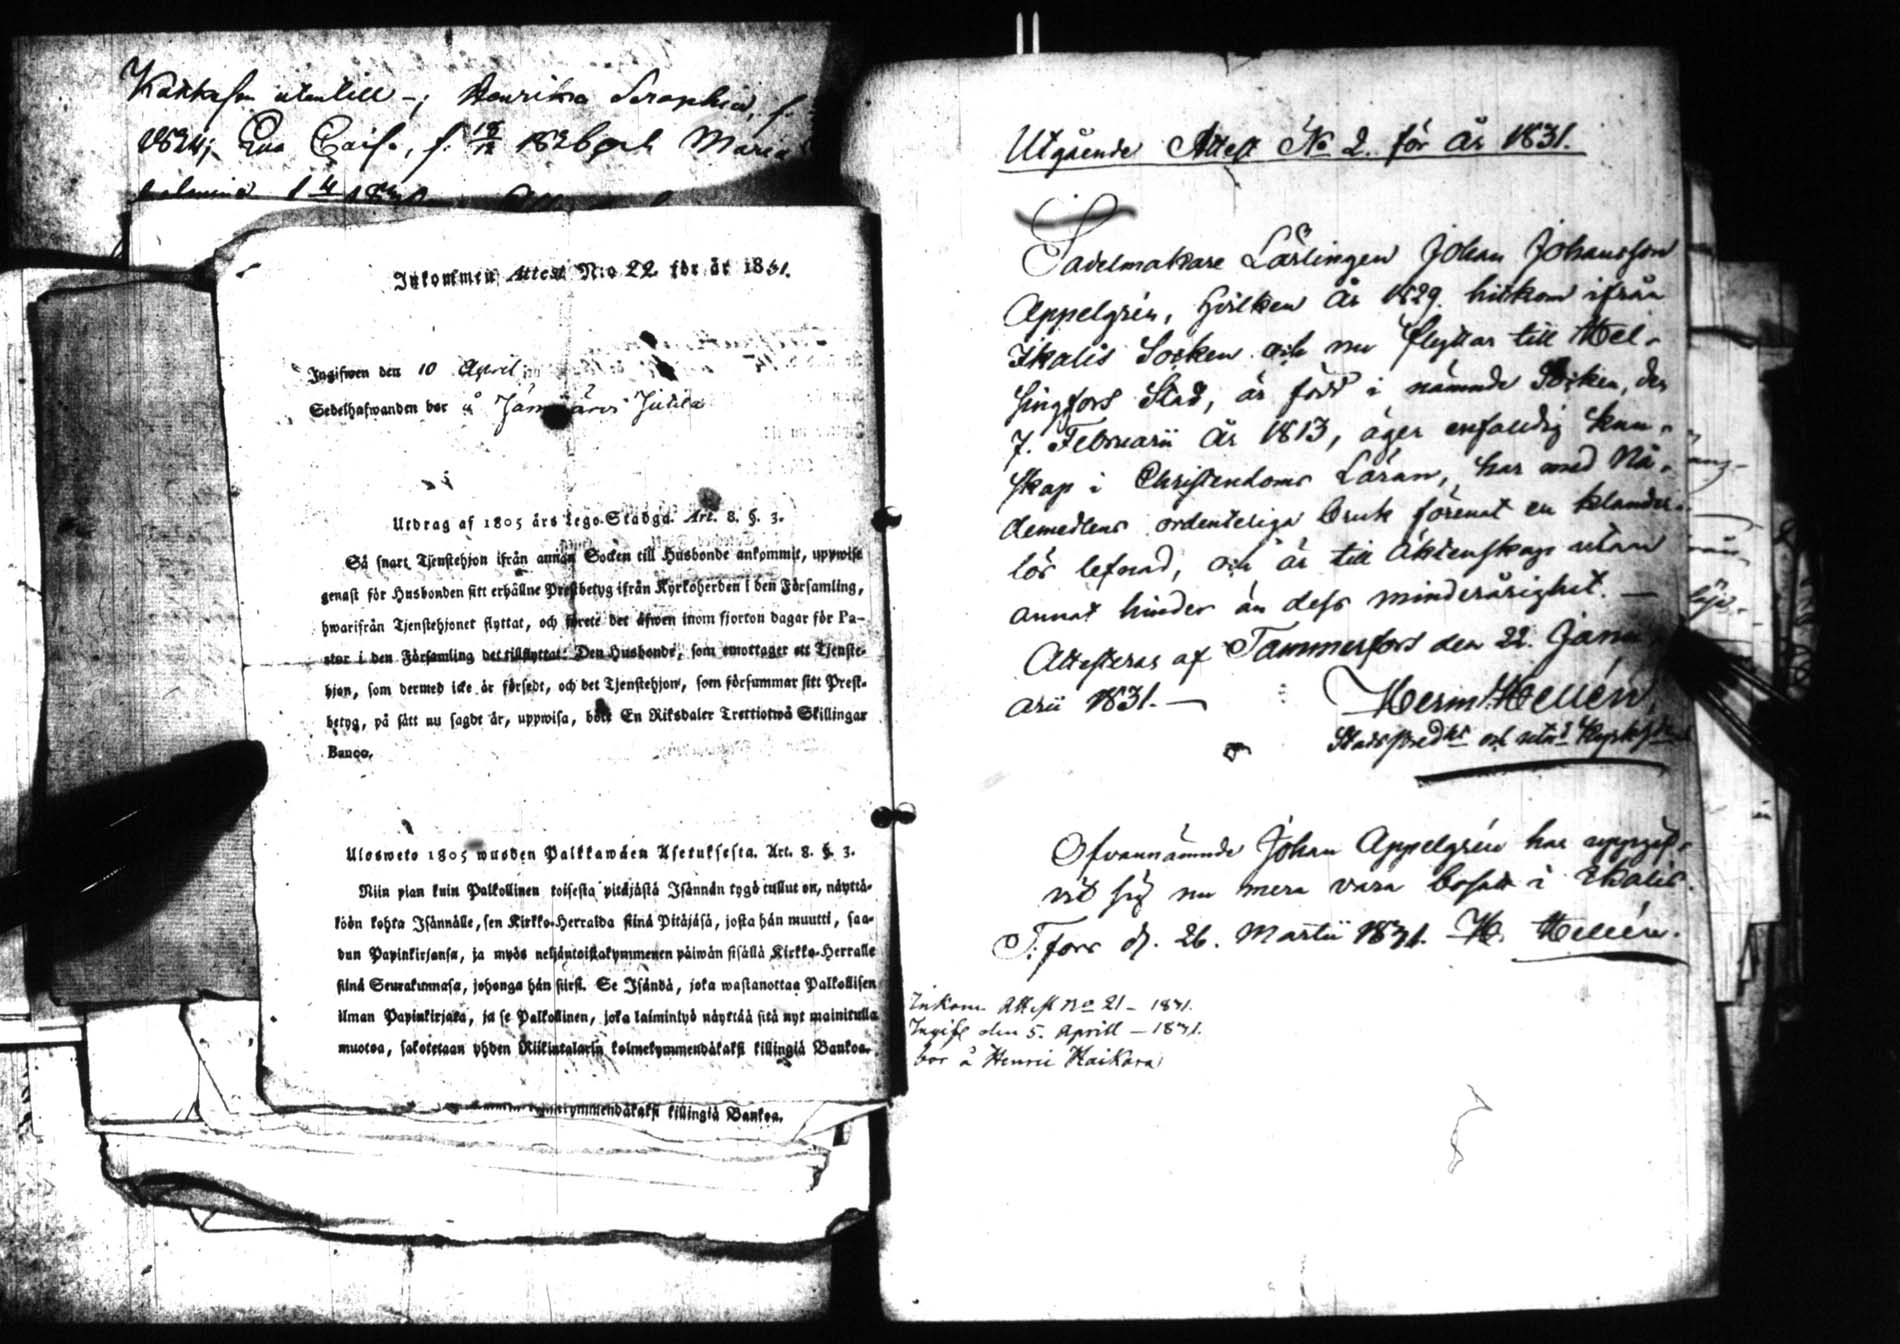 utantill –; Henrica Seraphia, f.
1824; Eva Carls., f. 18/12 1826 och Maria
Inkommen Attest N:o 22 för år 1831.
Ingifwen den 10 April
Sedelhafwanden bor å Jämijärvi
Utdrag af 1805 års Lego-Stadga. Art. 8. §. 3.
Så snart Tjenstehjon ifrån annan Socken till Husbonde ankommit, uppwise
genast för Husbonden sitt erhållne Prestbetyg ifrån Kyrkoherden i den Församling,
hwarifrån Tjenstehjonet flyttat, och förete det äfwen inom fjorton dagar för Pa-
stor i den Församling det tillflyttat. Den Husbonde, som emottager ett Tjenste-
hjon, som dermed icke är försedt, och det Tjenstehjon, som försummar sitt Prest-
betyg, på sätt nu sagdt är, uppwisa, böte En Riksdaler Trettiotwå Skillingar
Banco.
Ulosweto 1805 wuoden Palkkawäen Asetuksesta. Art. 8. §. 3.
Niin pian kuin Palkollinen toisesta pitäjästä Isännän tygö tullut on, näyttä-
köön kohta Isännälle, sen Kirkko-Herralda siinä Pitäjäsä, josta hän muutti, saa-
dun Papinkirjansa, ja myös neljäntoistakymmenen päiwän sisällä Kirkko-Herralle
siinä Seurakunnasa, johonga hän siirsi. Se Isändä, joka wastanottaa Palkollisen
ilman Papinkirjata, ja se Palkollinen, joka laimintyö näyttää sitä nyt mainitulla
muotoa, sakotetaan yhden Riikintalarin kolmekymmendäkaksi killingiä Bankoa.
kymmendäkaksi killingiä Bankoa.
Utgående Attest No 2. för år 1831.
Sadelmakare Lärlingen Johan Johansson
Appelgrén, hvilken år 1829 hitkom ifrån
Ikalis Socken och nu flyttar till Hel-
singfors Stad, är född i nämnde Socken, den
7. Februarii år 1813, äger enfaldig kun-
skap i Christendoms Läran, har med Nå-
demedlens ordenteliga bruk förenat en klander-
lös lefnad, och är till äktenskap utan
annat hinder än dess minderårighet. —
Attesteras af Tammerfors den 22. Janu-
arii 1831. — Herm. Hellén,
Ofvannämnde Johan Appelgrén har uppgif-
vit sig nu mera vara bosatt i Ikalis.
T:fors d. 26. Martii 1831. H. Hellén.
Inkom. Attest No 21 – 1831.
Ingifv. den 5. Aprill – 1831.
bor å Henrii Kaikara